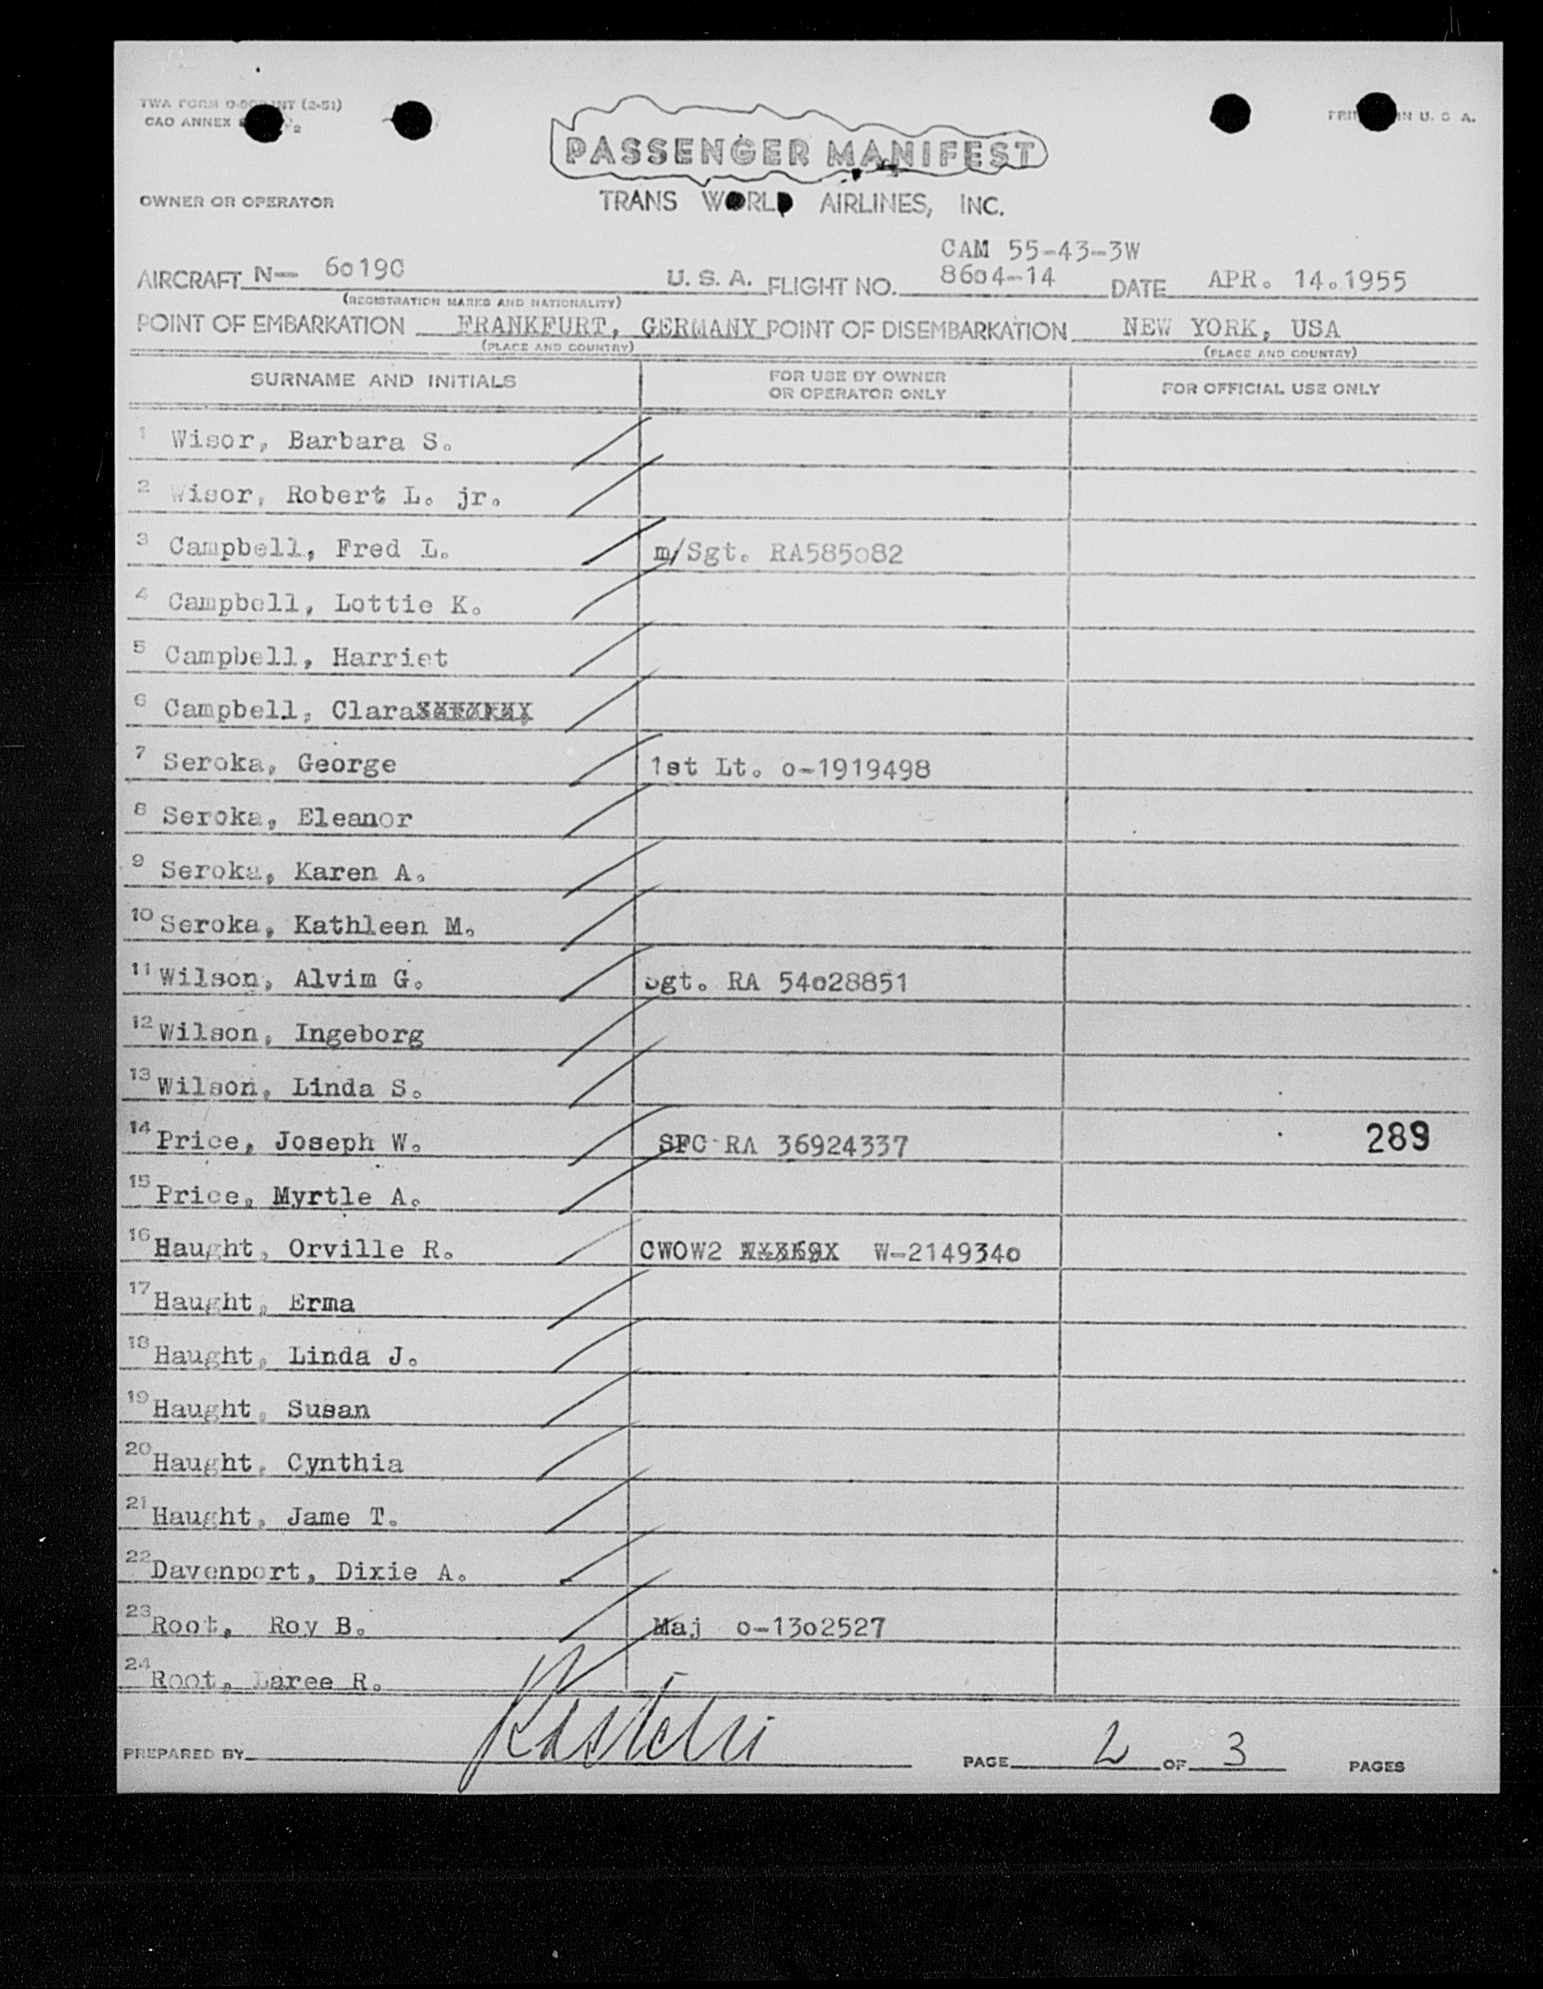 TWA FORM (2-51)
CAO ANNEX
IN U. S. A.
PASSENGER MANIFEST
OWNER OR OPERATOR
TRANS WORLD AIRLINES, INC.
CAM 55-43-3W
AIRCRAFT N- 6019C U. S. A. FLIGHT NO. 8604-14 DATE APR. 14.1955
(REGISTRATION MARKS AND NATIONALITY)
POINT OF EMBARKATION FRANKFURT, GERMANY POINT OF DISEMBARKATION NEW YORK, USA
(PLACE AND COUNTRY) (PLACE AND COUNTRY)
SURNAME AND INITIALS FOR USE BY OWNER OR OPERATOR ONLY FOR OFFICIAL USE ONLY
1 Wisor, Barbara S.
2 Wisor, Robert L. jr.
3 Campbell, Fred L. m/Sgt. RA585o82
4 Campbell, Lottie K.
5 Campbell, Harriet
6 Campbell, Clara
7 Seroka, George 1st Lt. o-1919498
8 Seroka, Eleanor
9 Seroka, Karen A.
10 Seroka, Kathleen M.
11 Wilson, Alvim G. Sgt. RA 54o28851
12 Wilson, Ingeborg
13 Wilson, Linda S.
14 Price, Joseph W. SFC RA 36924337 289
15 Price, Myrtle A.
16 Haught, Orville R. CWOW2 W-214934o
17 Haught, Erma
18 Haught, Linda J.
19 Haught, Susan
20 Haught, Cynthia
21 Haught, Jame T.
22 Davenport, Dixie A.
23 Root, Roy B. Maj o-13o2527
24 Root, Laree R.
PREPARED BY PAGE 2 OF 3 PAGES